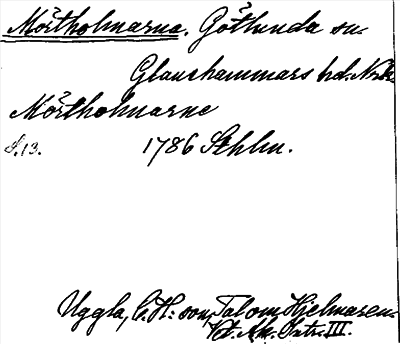 Mörtholmarna. Götlunda sn.
Glanshammars hd. Nrke
Mörtholmarne
S. 13. 1786 Sthlm.
Uggla, C. H:son, Tal om Hjelmaren.
Vet. Ak. Intr. III.